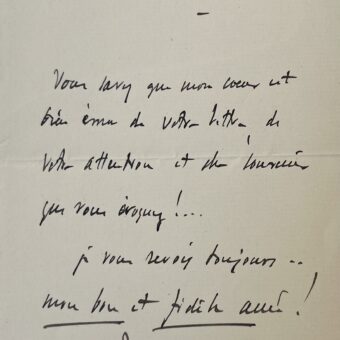 Vous savez que mon coeur est
bien ému de votre lettre de
votre attention et du souvenir
que vous évoquez !...
je vous revois toujours ..
mon bon et fidèle ami !